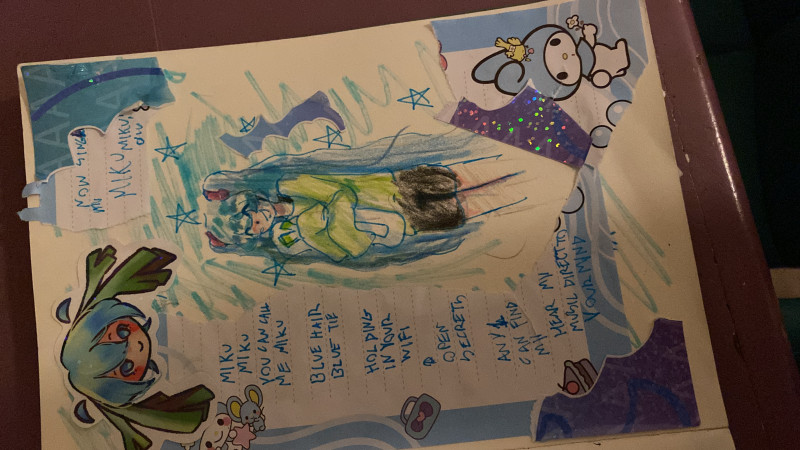 NOW
MIKU MIKU,
MIKU
MIKU
YOU CAN CALL
ME MIKU
BLUE HAIR
BLUE TIE
HOLDING
IN YOUR
WIFI
OPEN
SECRETS
ANY 1
CAN FIND
MI
HEAR MY
MUSIC DIRECT TO
YOUR MIND